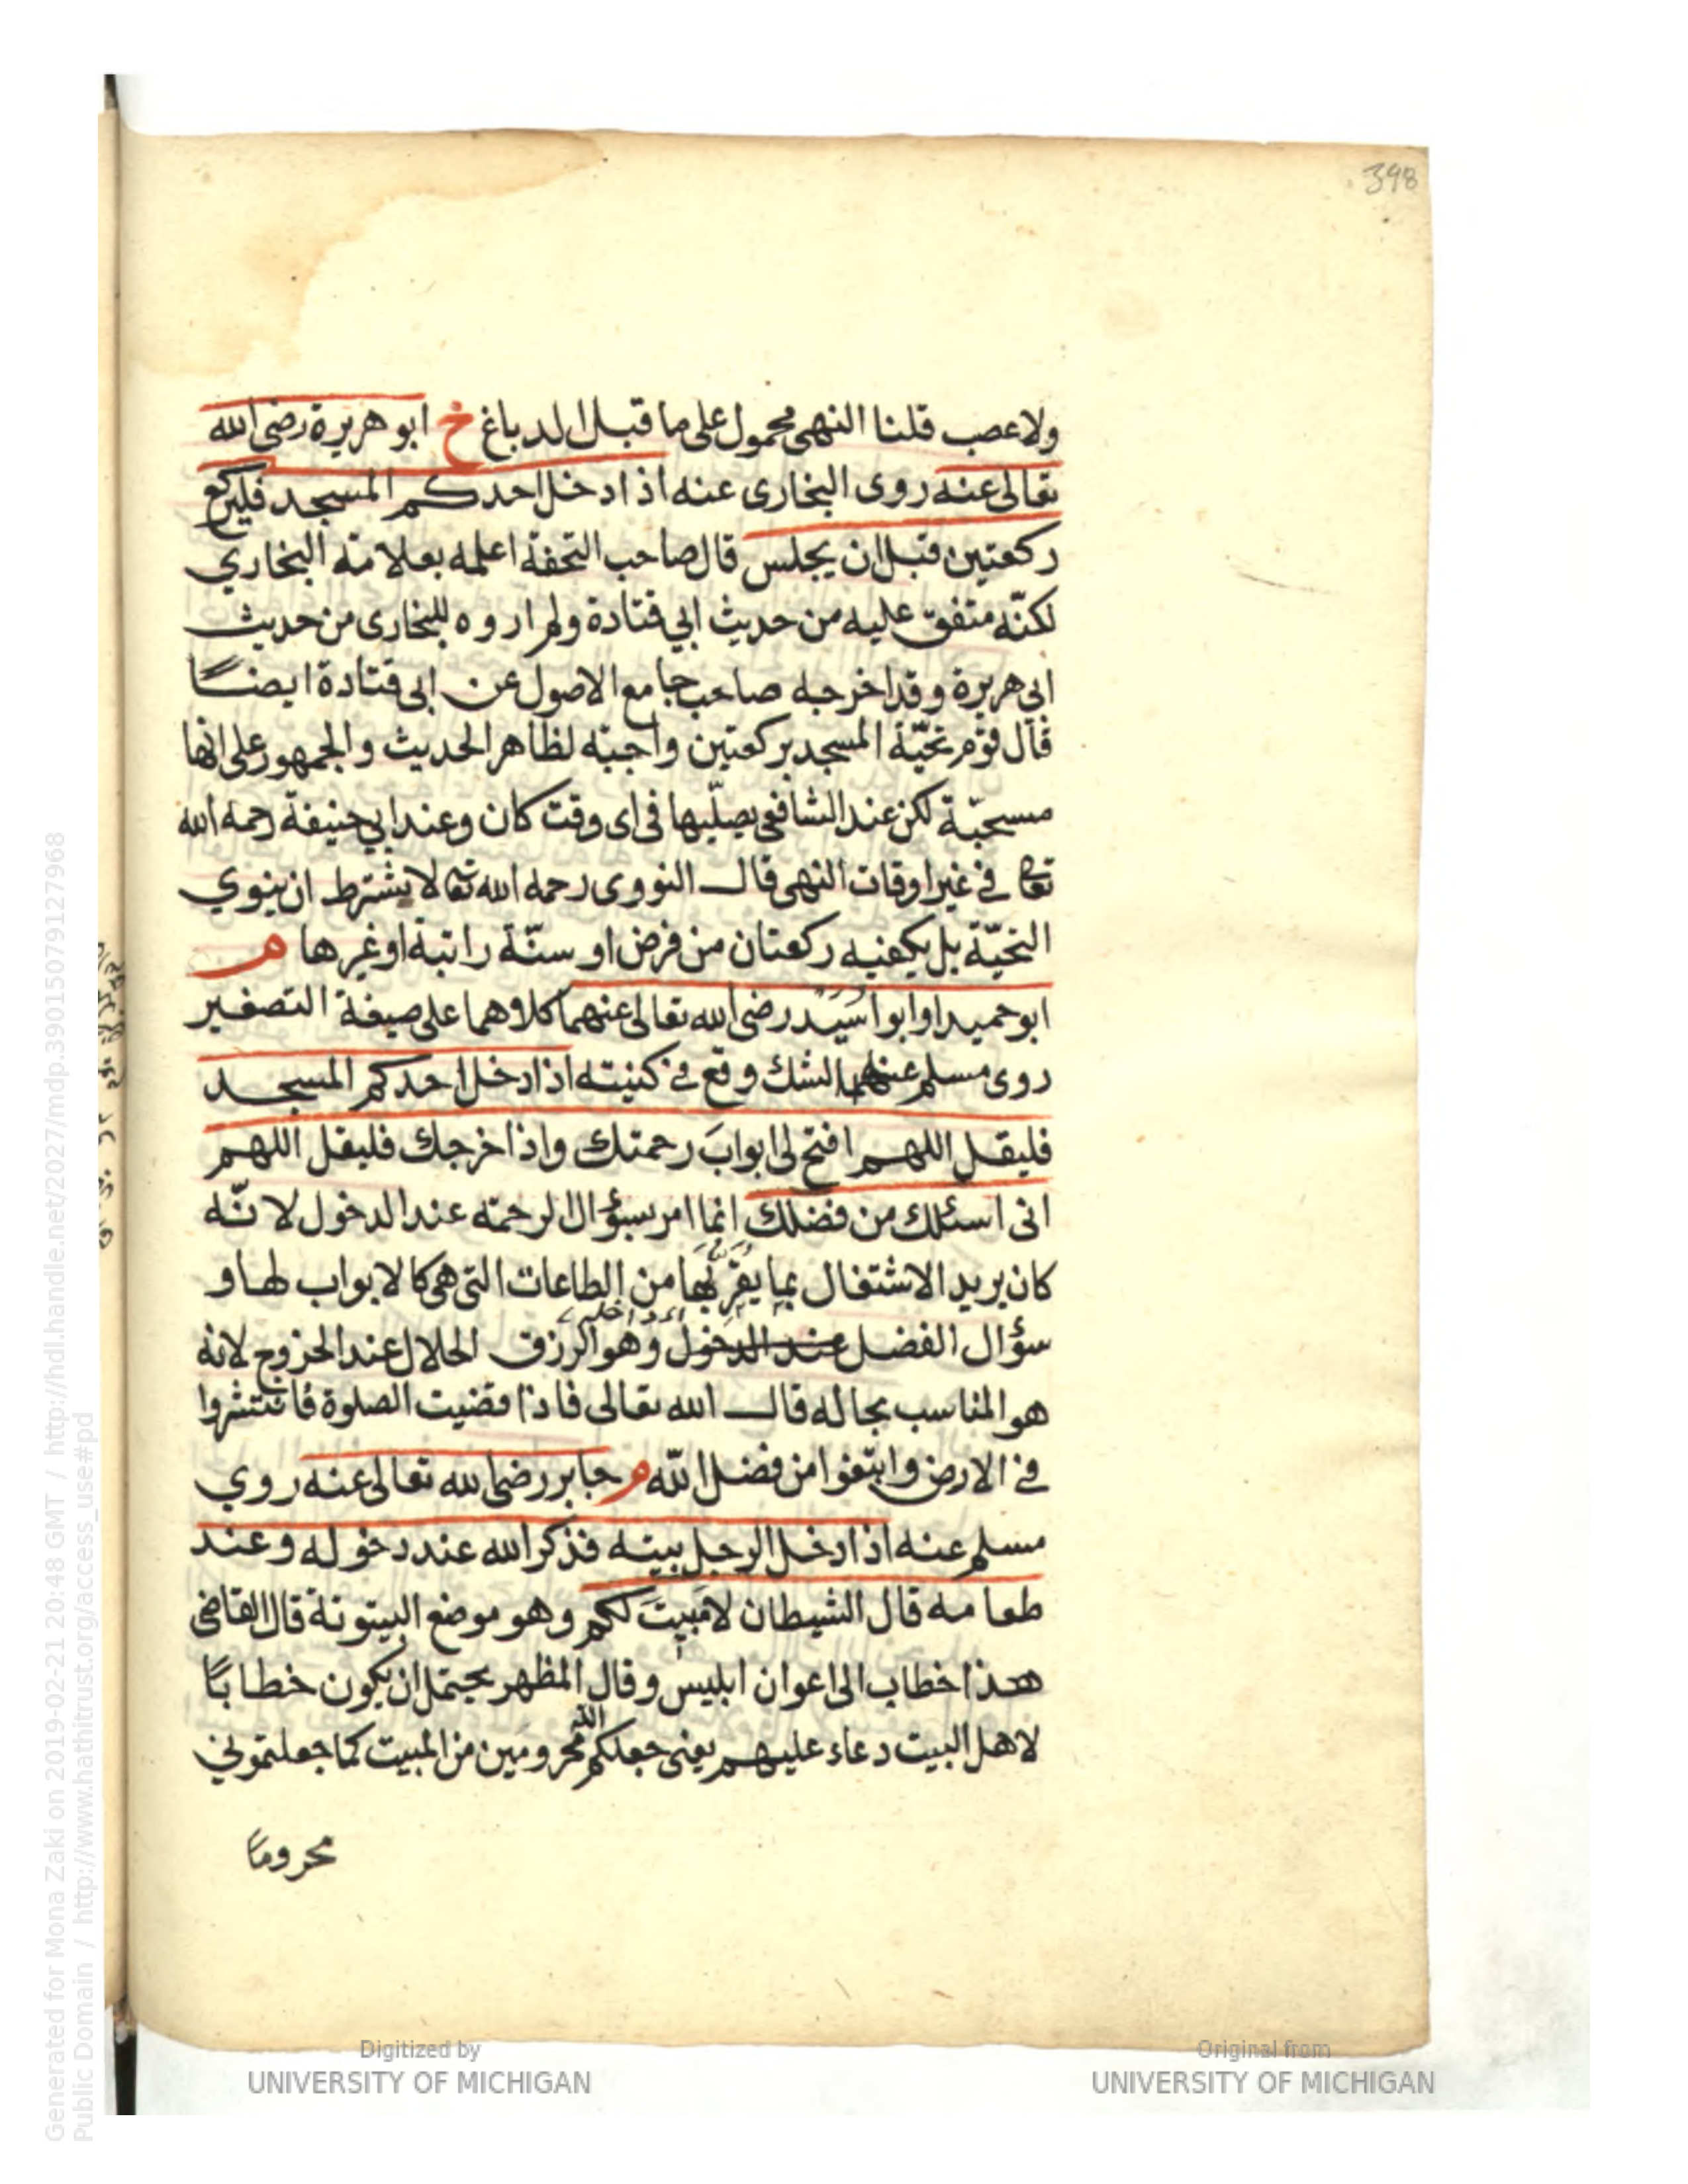 398
ولا عصب قلنا النهى محمول على ما قبل الدباغ خ ابو هريرة رضى الله
تعالى عنه روى البخارى عنه اذا دخل احدكم المسجد فليركع
ركعتين قبل ان يجلس قال صاحب التحفة اعلمه بعلامة البخاري
لكنّه متفق عليه من حديث ابي قتادة ولم اروه للبخارى من حديث
ابى هريرة وقد اخرجه صاحب جامع الاصول عن ابى قتادة ايضًا
قال قوم تحيّة المسجد بركعتين واجبة لظاهر الحديث والجمهور على انها
مستحبّة لكن عند الشافعى يصلّيها فى اى وقت كان وعند ابي حنيفة رحمه الله
تعا فى غير اوقات النهى قال النووى رحمه الله تعا لا يشترط ان ينوي
التحيّة بل يكفيه ركعتان من فرض او سنّة راتبة او غيرها م
ابو حميد او ابو اسَيد رضى الله تعالى عنهما كلاوهما على صيغة التصغير
روى مسلم عنهما الشك وقع فى كنيته اذا دخل احدكم المسجد
فليقل اللهم افتح لى ابوابَ رحمتك واذا خرجك فليقل اللهم
انى اسئلك من فضلك انما امر بسؤال الرحمة عند الدخول لانّه
كان يريد الاشتغال بما يقرّبها من الطاعات التى هى كالابواب لها و
سؤال الفضل عند الدخول وهو الرزق الحلال عند الخروج لانه
هو المناسب بحاله قال الله تعالى فاذا قضيت الصلوة فانتشروا
فى الارض وابتغوا من فضل الله م جابر رضى الله تعالى عنه روي
مسلم عنه اذا دخل الرجل بيته فذكر الله عند دخوله وعند
طعامه قال الشيطان لا مَبيتَ لكم وهو موضع البيتوتة قال القاضى
هذا خطاب الى اعوان ابليس وقال المظهر يحتمل ان يكون خطابًا
لاهل البيت دعاء عليهم يعنى جعلكم الله محرومين من المبيت كما جعلتموني
محرومًا
Generated for Mona Zaki on 2019-02-21 20:48 GMT / http://hdl.handle.net/2027/mdp.39015079127968
Public Domain / http://www.hathitrust.org/access_use#pd
Digitized by
UNIVERSITY OF MICHIGAN
Original from
UNIVERSITY OF MICHIGAN